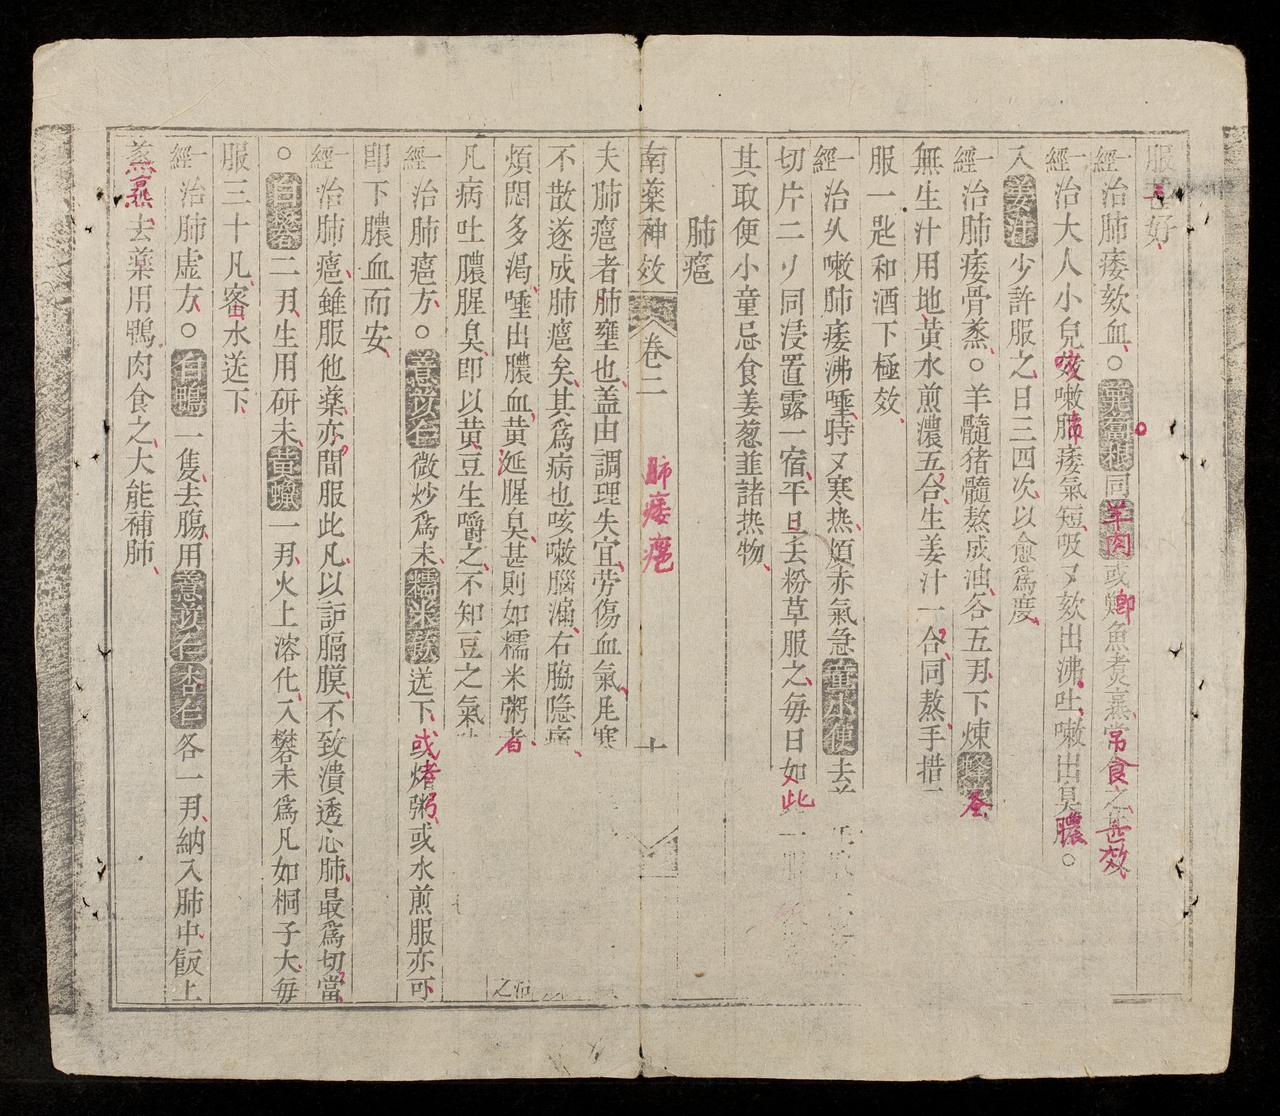 服甚好
一經治肺痿欬血○萬根同羊肉或魚煮熹常食之甚效
一經治大人小兒咳嗽肺痿氣短吸又欬出沸吐嗽出臭膿○
入姜汁少許服之日三四次以愈爲度
一經治肺痿骨蒸○羊髓猪髓熬成油各五刃下煉蜂荃
無生汁用地黃水煎濃五合生姜汁一合同熬手措
服一匙和酒下極效
一經治久嗽肺痿沸唾時又寒热煩赤氣急童小便去
切片二刂同浸置露一宿平旦去粉草服之毎日如此一服
其取便小童忌食姜葱韮諸热物
肺癰
南薬神效 卷二 肺痿癰 十
夫肺癰者肺壅也盖由調理失宜劳傷血氣凡寒
不散遂成肺癰矣其爲病也咳嗽腦滿右脇隐痛
煩悶多渴唾出膿血黄涎腥臭甚則如糯米粥者 治之
凡病吐膿腥臭即以黄豆生嚼之不知豆之氣
一經治肺癰方○薏苡仁微炒爲末糯米飲送下或煮粥或水煎服亦可
即下膿血而安
一經治肺癰雖服他薬亦間服此凡以訲膈膜不致潰透心肺最爲切當
○白礬二刃生用研未黄蠟一刃火上溶化入礬未爲凡如桐子大毎
服三十凡審水送下
一經治肺虚方○白鴨一隻去腸用薏苡仁杏仁各一刃納入肺中飯上
蒸熹去薬用鴨肉食之大能補肺